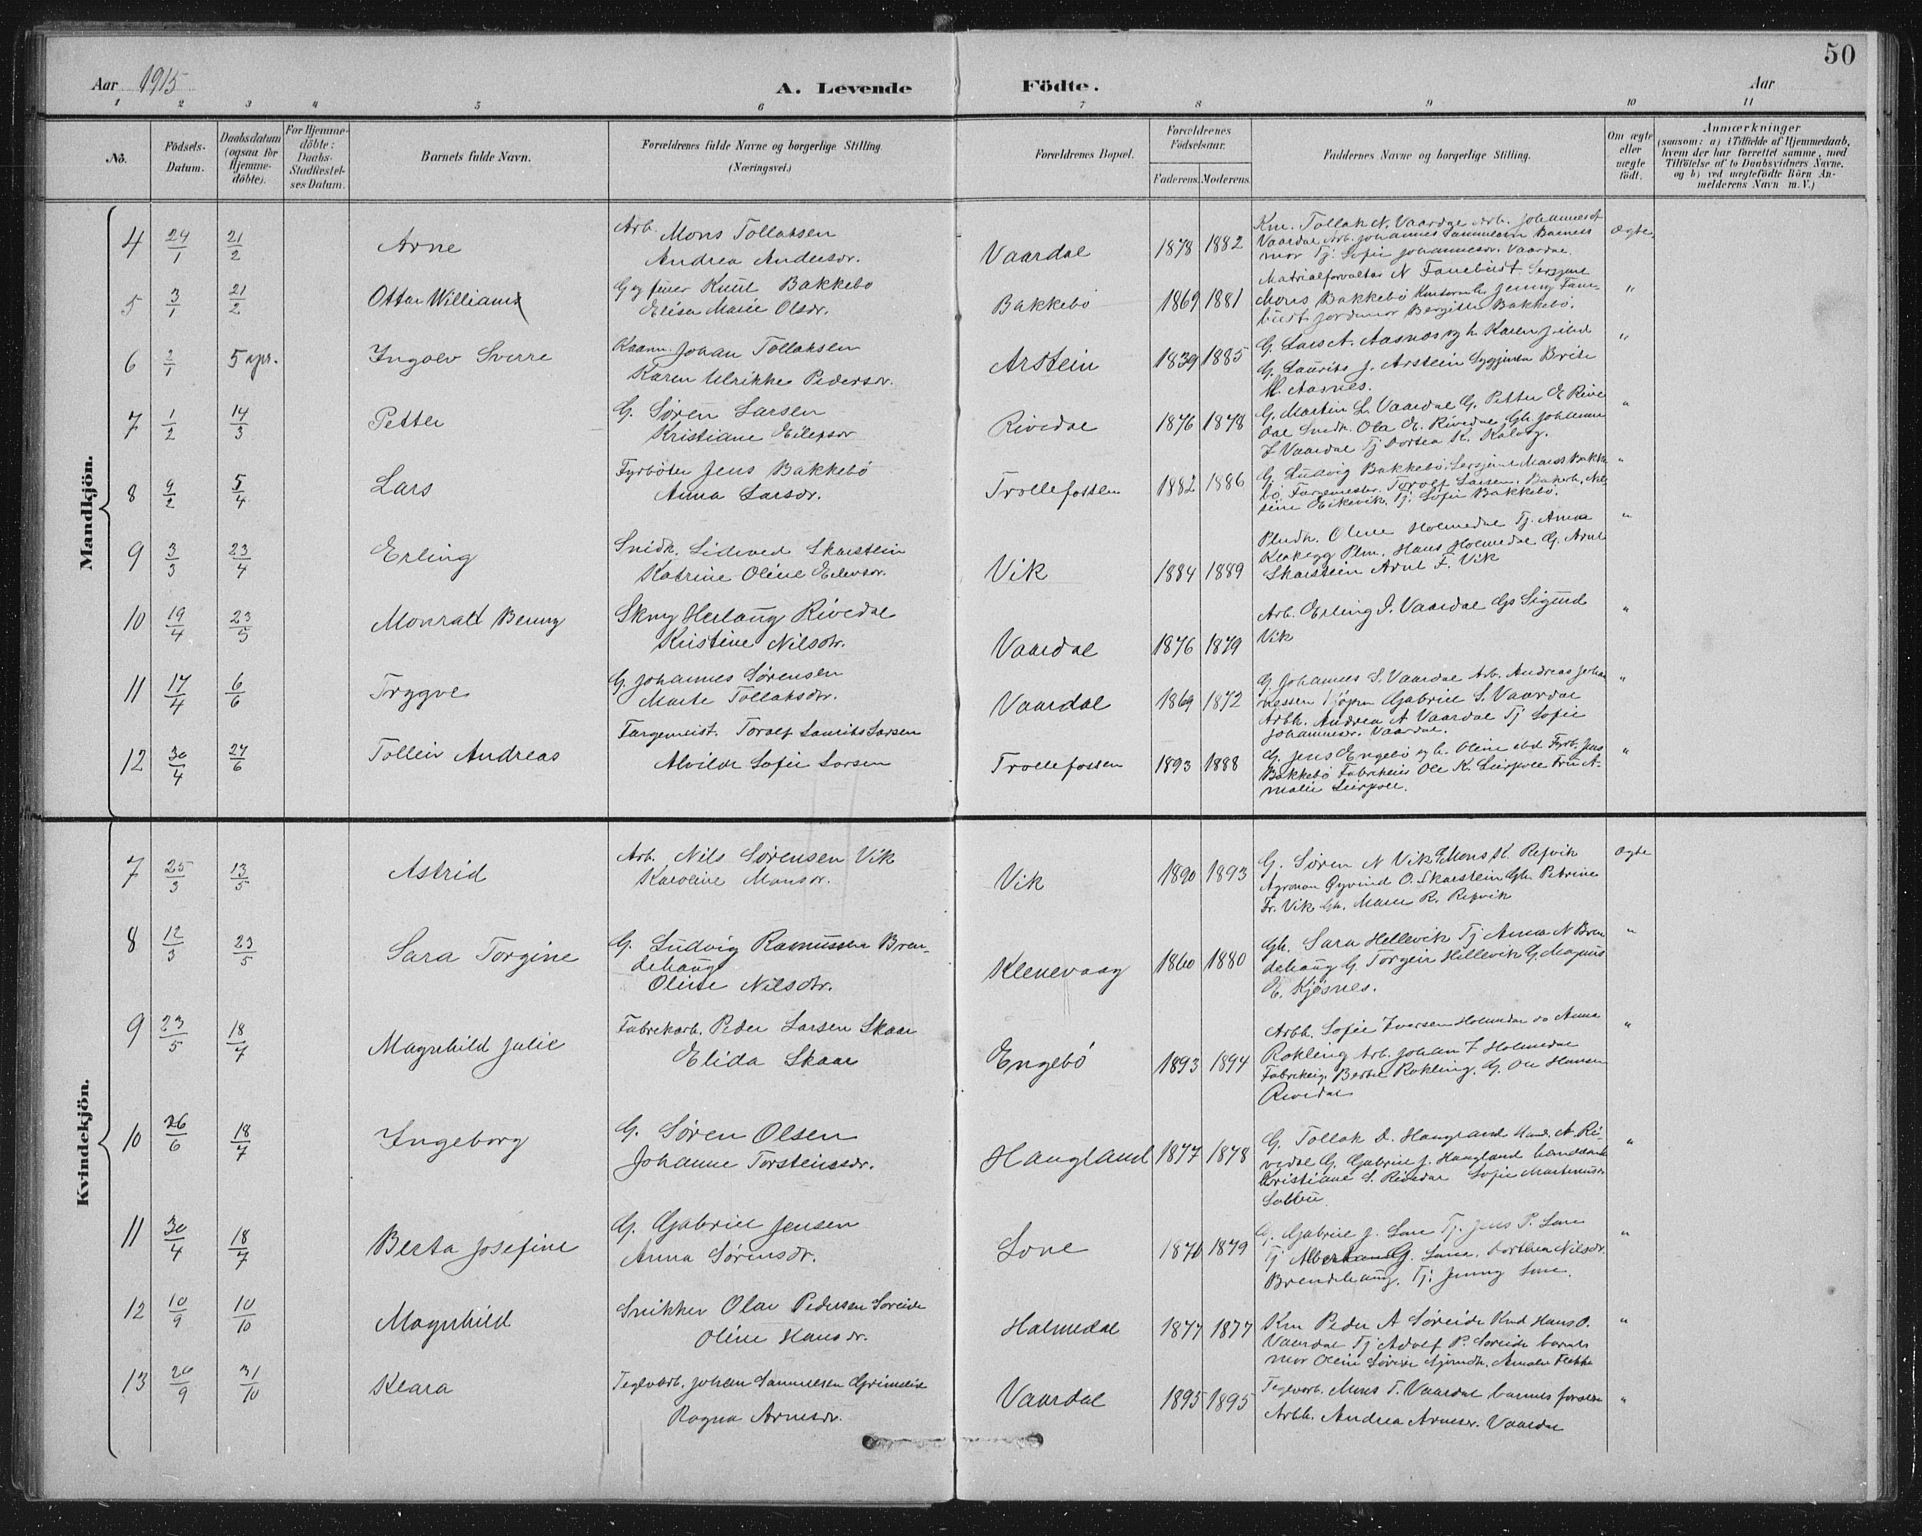 50
Aar 1915
A. Levende Födte.
Aar
1 2 3 4 5 6 7 8 9 10 11
No.
Födsels-Datum.
Daabsdatum (ogsaa for Hjemme-döbte).
For Hjemme-döbte: Daabs-Stadfæstelses Datum.
Barnets fulde Navn.
Forældrenes fulde Navne og borgerlige Stilling (Næringsvei.)
Forældrenes Bopæl.
Forældrenes Födselsaar.
Faderens. Moderens.
Faddernes Navne og borgerlige Stilling.
Om ægte eller uægte födt.
Anmærkninger
(saasom: a) i Tilfælde af Hjemmedaab, hvem der har forrettet samme, med Tilföielse af to Daabsvidners Navne, og b) ved uægtefödte Börn Anmelderens Navn m. V.)
Mandkjön.
4 24/1 21/2 Arne
Arb. Mons Tollaksen
Andrea Andersdr.
Vaardal 1878 1882
Km. Tollak N. Vaardal Arb. Johannes A
Vaardal Arb. Johannes Samuelsen Barnets
mor Tj. Sofie Johannesdr. Vaardal
Ægte
5 3/1 21/2 Ottar William
Knut Bakkebö
Elisa Marie Olsdr.
Bakkebö 1869 1881
Matrialforvalter N Fanebust Sersjant
Mons Bakkebö Jenny Fane-
bust Jordmor Bergitte Bakkebö.
"
6 2/1 5 apr. Ingolv Sverre
Kaarm. Johan Tollaksen
Karen Ulrikke Pedersdr.
Arstein 1839 1885
G. Lars A. Aasnes og h. Karen J ibd
G. Laurits J. Arstein Sygjenta Brite
M. Aasnes.
"
7 1/2 14/3 Petter
G. Søren Larsen
Kristiane Eilefsdr
Rivedal 1876 1878
G. Martin L. Vaardal G. Petter E Rive
dal Snedk. Ola E. Rivedal Gh. Johanne
I Vaardal Tj Dortea K. Kalvåg.
"
8 9/2 5/4 Lars
Fyrböter Jens Bakkebö
Anna Larsdr.
Trollefossen 1882 1886
G. Ludvig Bakkebö, Sersjant Mons Bakke
bö, Fargemester Torolf Larsen, Nil-
sine Eikevik, Tj. Sofie Bakkebö.
"
9 3/3 23/4 Erling
Snidk. Sideved Skarstein
Katrine Oline Eilevsdr.
Vik 1884 1889
Oline Holmedal Tj. Anna
Klakegg Plm. Hans Holmedal G. Arnt
Skarstein Arnt F. Vik
"
10 19/4 23/5 Monrad Benny
Herlaug Rivedal
Kristine Nilsdr.
Vaardal 1876 1879
Arb. Erling J. Vaardal Gs Sigurd
Vik
"
11 17/4 6/6 Tryggve
G. Johannes Sørensen
Marte Tollaksdr.
Vaardal 1869 1872
G. Johannes S. Vaardal Arb. Andreas Johan
nessen Gabriel S. Vaardal
Arbh. Andrea A Vaardal Tj Sofie
Johannesdr. Vaardal.
"
12 30/4 27/6 Tolleiv Andreas
Fargemest. Torolf Laurits Larsen
Alvilde Sofie Larsen
Trollefossen 1893 1888
G. Jens Engebö og h. Oline ibd Fyrb. Jens
Bakkebö Fabrikeier Ole K. Leirpoll Fru A-
malie Leirpoll.
"
Kvindekjön.
7 25/3 13/5 Astrid
Arb. Nils Sørensen Vik
Karoline Monsdr.
Vik 1890 1893
G. Søren N Vik G Mons K. Refvik
Agronom Øyvind O. Skarstein Gh. Petrine
Fr. Vik Gh. Maren R. Refvik
Ægte
8 12/3 23/5 Sara Torgine
G. Ludvig Rasmussen Bren-
dehaug
Oline Nilsdr.
Klenevaag 1860 1880
Gh. Sara Hellevik Tj Anna N Bren
dehaug G. Torgeir Hellevik G. Magnus
E. Kjøsnes.
"
9 23/5 18/7 Magnhild Julie
Fabrekarb. Peder Larsen Skaar
Elida Skaar
Engebö 1893 1894
Arbh. Sofie Iversen Holmedal do Anna
Rokling Arb. Johan I Holmedal
Bertel Rokling, G. Ole Hansen
Rivedal
"
10 26/6 18/7 Ingeborg
G. Søren Olsen
Johanne Torsteinsdr.
Haugland 1877 1878
G. Tollak D. Haugland A. Ri-
vedal G. Gabriel J. Haugland
Kristiane S. Rivedal Sofie
"
11 30/4 18/7 Berta Josefine
G. Gabriel Jensen
Anna Sørensdr.
Lone 1870 1879
G. Gabriel J. Lone Tj. Jens P. Lone
Tj G. Lone. Dorthea Nilsdr.
Brendehaug. Tj. Jenny Lone.
"
12 10/9 10/10 Magnhild
Snikker Olav Pedersen Søreide
Oline Hansdr.
Holmedal 1877 1877
Km Peder A Søreide Hans O.
Vaardal Tj Adolf P. Søreide barnets
mor Oline Søreide Amalie Flekke
"
13 20/9 31/10 Klara
Teglverkarb. Johan Samuelsen Grimelid
Ragna Arnesdr.
Vaardal 1895 1895
Teglverkarb. Mons T. Vaardal barnets foreldre
Arbh. Andrea Arnesdr. Vaardal
"